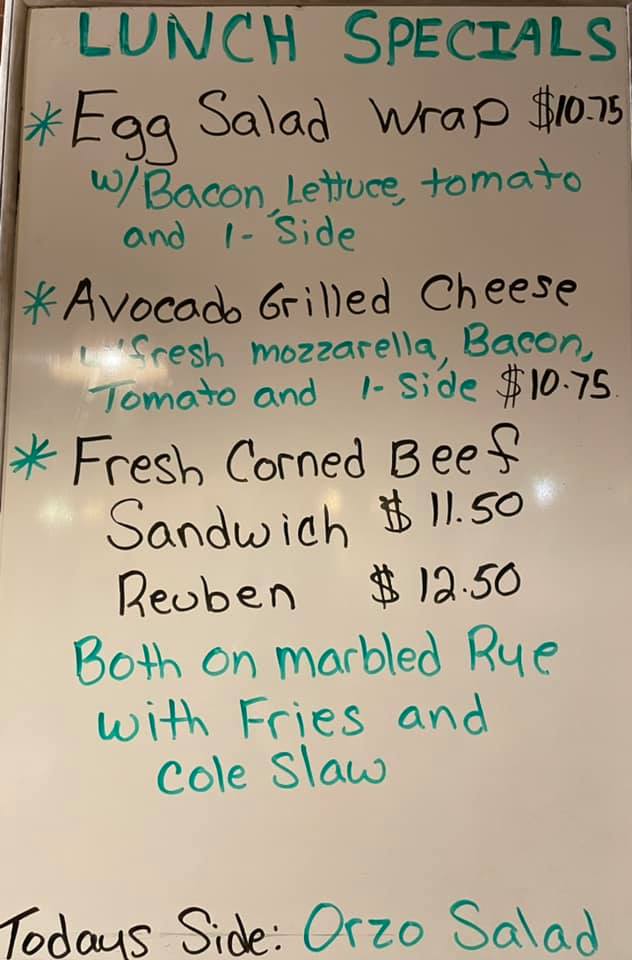 LUNCH SPECIALS
* Egg Salad Wrap $10.75
w/Bacon, Lettuce, tomato
and 1- Side
* Avocado Grilled Cheese
w/fresh mozzarella, Bacon,
Tomato and 1- Side $10.75
* Fresh Corned Beef
Sandwich $11.50
Reuben $12.50
Both on marbled Rye
with Fries and
Cole Slaw
Todays Side: Orzo Salad